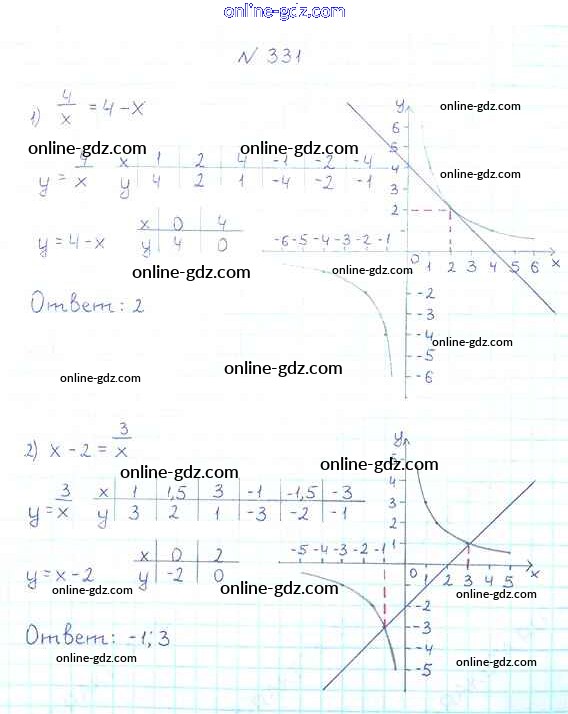 online-gdz.com
N 331
1) 4/x = 4-x
online-gdz.com
online-gdz.com online-gdz.com
y = 4/x x 1 2 4 -1 -2 -4
y 4 2 1 -4 -2 -1
online-gdz.com
online-gdz.com
y = 4-x x 0 4
y 4 0
online-gdz.com
online-gdz.com
Ответ: 2
online-gdz.com
online-gdz.com
online-gdz.com
y
6
5
4
3
2
-6 -5 -4 -3 -2 -1 0 1 2 3 4 5 6 x
-2
-3
-4
-5
-6
2) x-2 = 3/x
online-gdz.com online-gdz.com
y = 3/x x 1 1,5 3 -1 -1,5 -3
y 3 2 1 -3 -2 -1
online-gdz.com
y = x-2 x 0 2
y -2 0
online-gdz.com
online-gdz.com
online-gdz.com
Ответ: -1; 3
online-gdz.com
online-gdz.com
y
5
4
3
2
1
-5 -4 -3 -2 -1 0 1 2 3 4 5 x
-2
-3
-4
-5